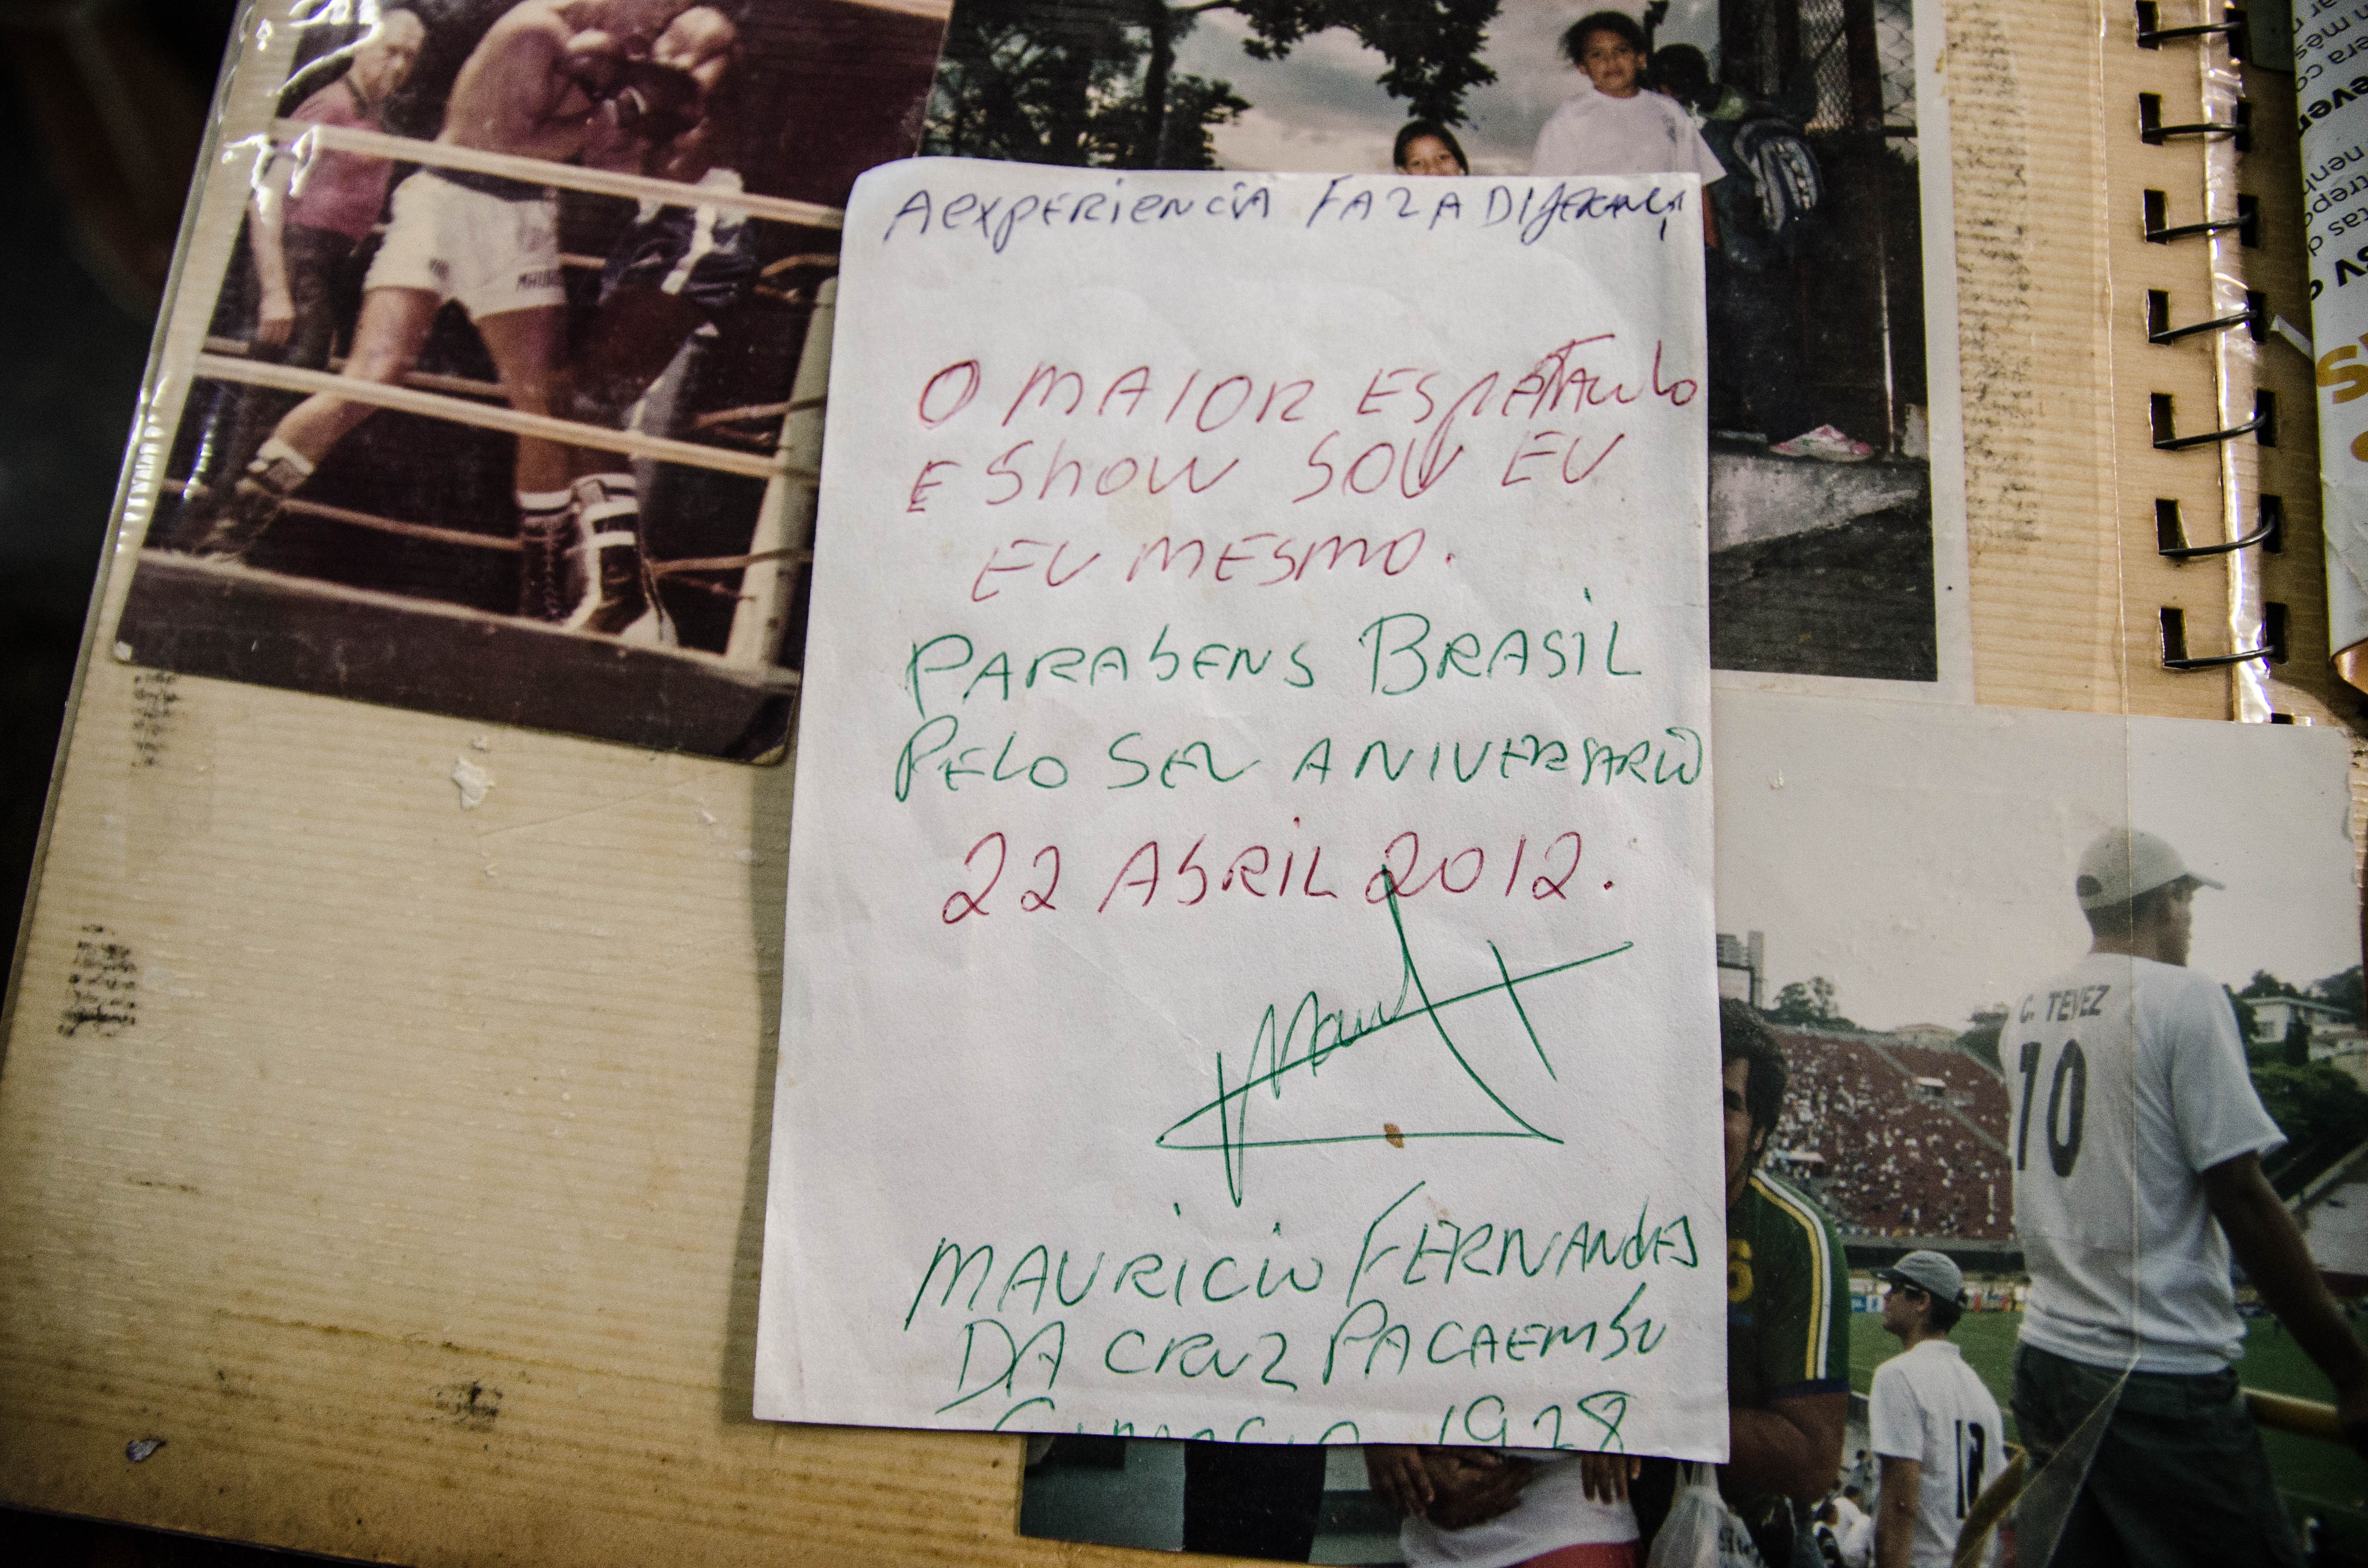 A EXPERIENCIA FAZ A DIFERENÇA
O MAIOR ESPETACULO
E ShOW SOU EU
EU MESMO.
PARABENS BRASIL
PELO SEU ANIVERSARIO
22 ABRIL 2012.
MAURICIO FERNANDES
DA CRUZ PACAEMBU
1928
C. TEVEZ
10